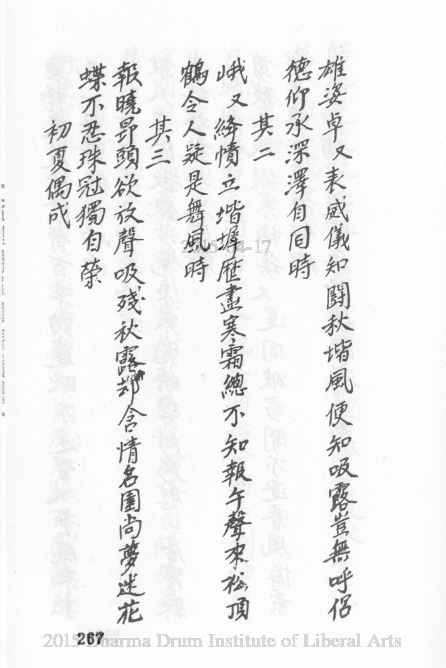 雄姿卓又表威儀知鬪秋堦風便知吸露豈無呼侶
德仰承深澤自同時
其二
峨又絳幘立堦墀歷盡寒霜總不知報午聲來松頂
鶴令人疑是舞風時
其三
報曉昂頭欲放聲吸殘秋露却含情名園尚夢迷花
蝶不忍珠冠獨自榮
初夏偶成
267
2015 Dharma Drum Institute of Liberal Arts